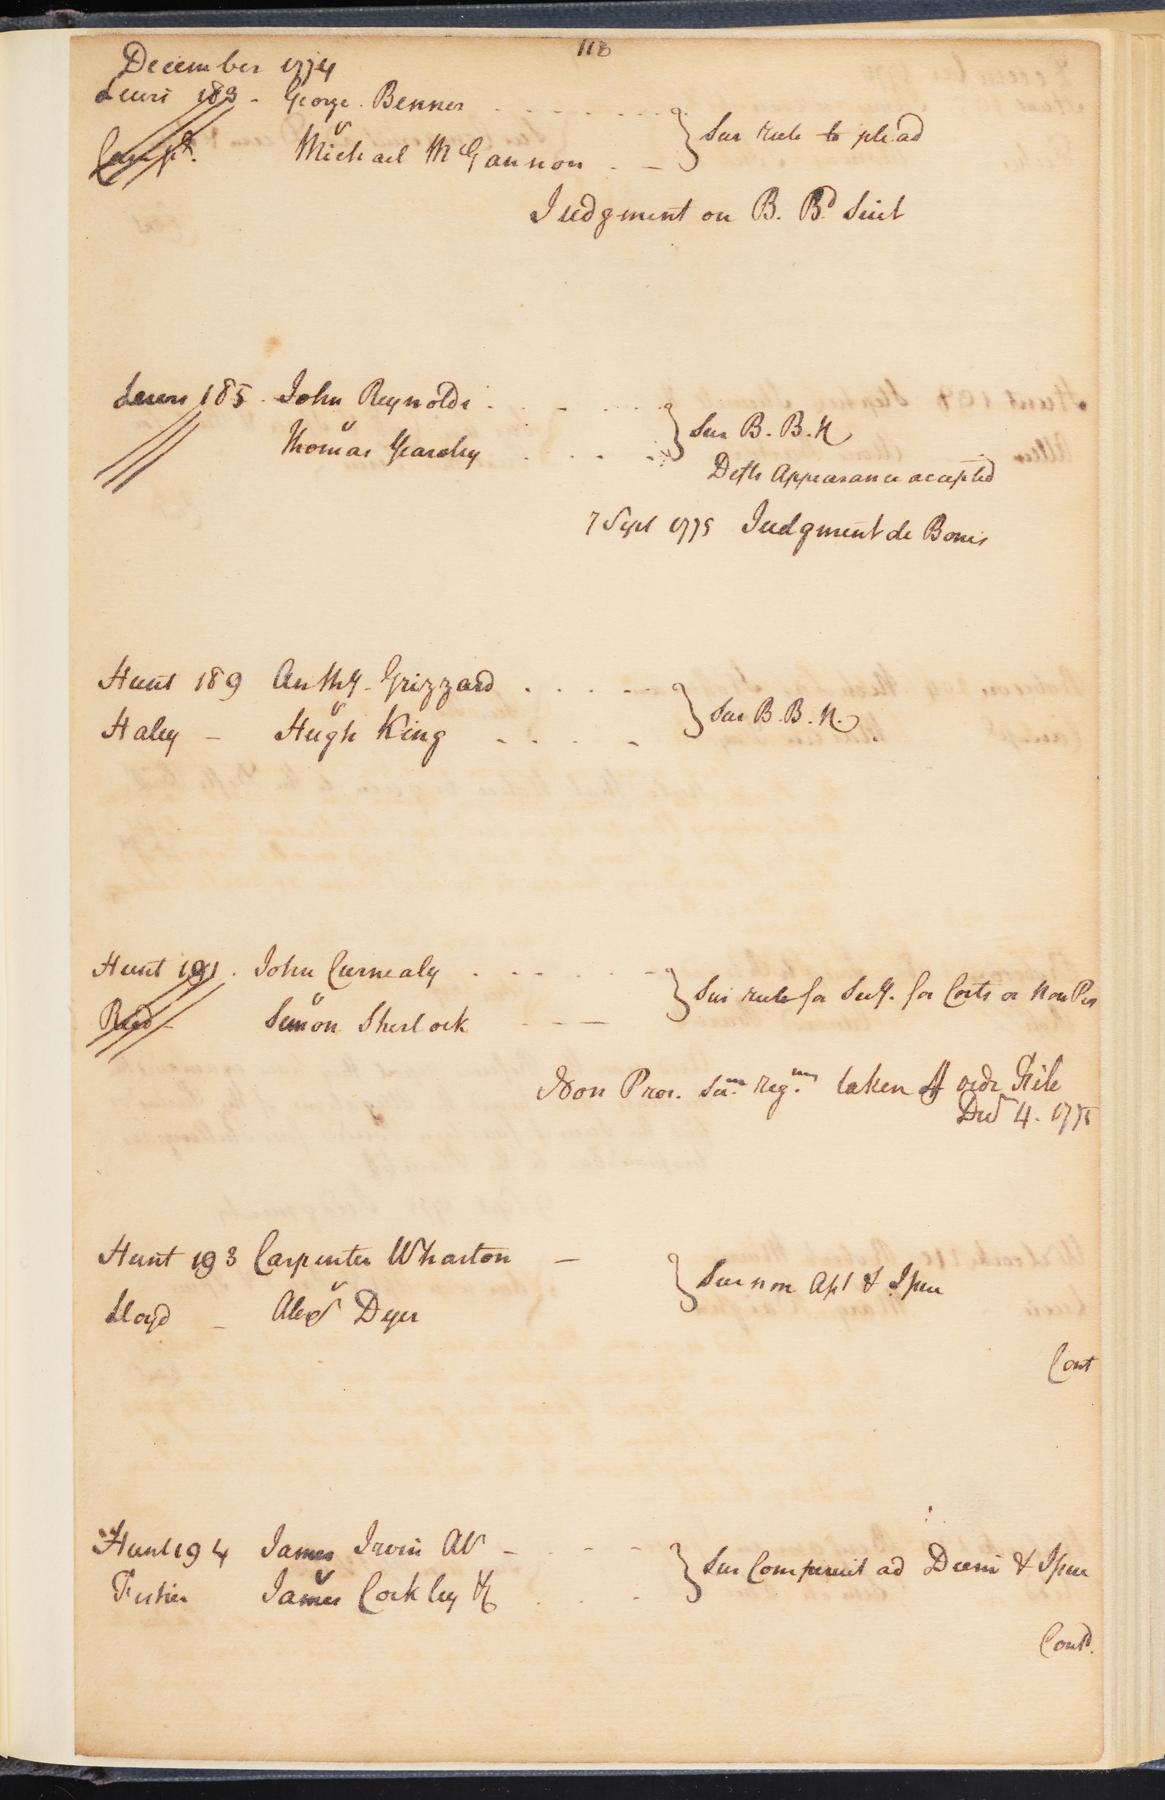 118
December 1774
Lewis 183 - George Benner
v
Camp.t Michael McGannon } Sur rule to plead
Judgment on B. Bd Suit
Lewis 185. John Reynolds
v
Thomas Yearsley } Sur B. B. N
Defts Appearance accepted
7 Sept 1775 Judgment de Bonis
Hunt 189 Anthy. Grizzard
v
Haley - Hugh King } Sur B. B. N.
Hunt 191. John Curnealy
v
Reed - Simon Sherlock } Sur rule for Secy. for Costs or Non Pros
Non Pros. taken off vide File
Decr 4. 1775
Hunt 193 Carpenter Wharton -
v
Lloyd - Alexr Dyer } Sur non Apt & Issue
Cont
Hunt 194 James Irvin
v
Fisher James Corkley } Sur Comperuit ad Diem & Issue
Contd.